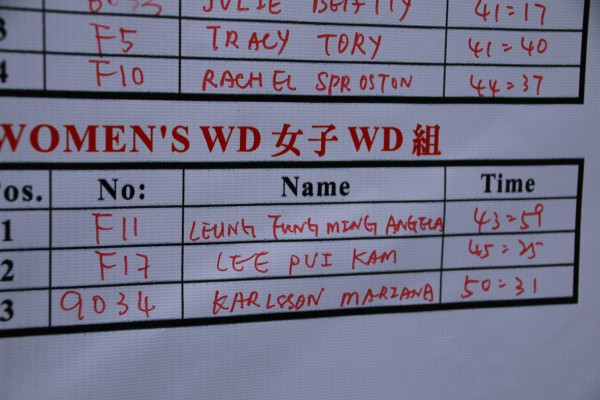 JULIE 41=17
3 F5 TRACY TORY 41=40
4 F10 RACHEL SPROSTON 44=37
WOMEN'S WD 女子 WD 組
Pos. No: Name Time
1 F11 LEUNG FUNG MING ANGELA 43=59
2 F17 LEE PUI KAM 45=35
3 9034 KARLSSON MARIANA 50=31